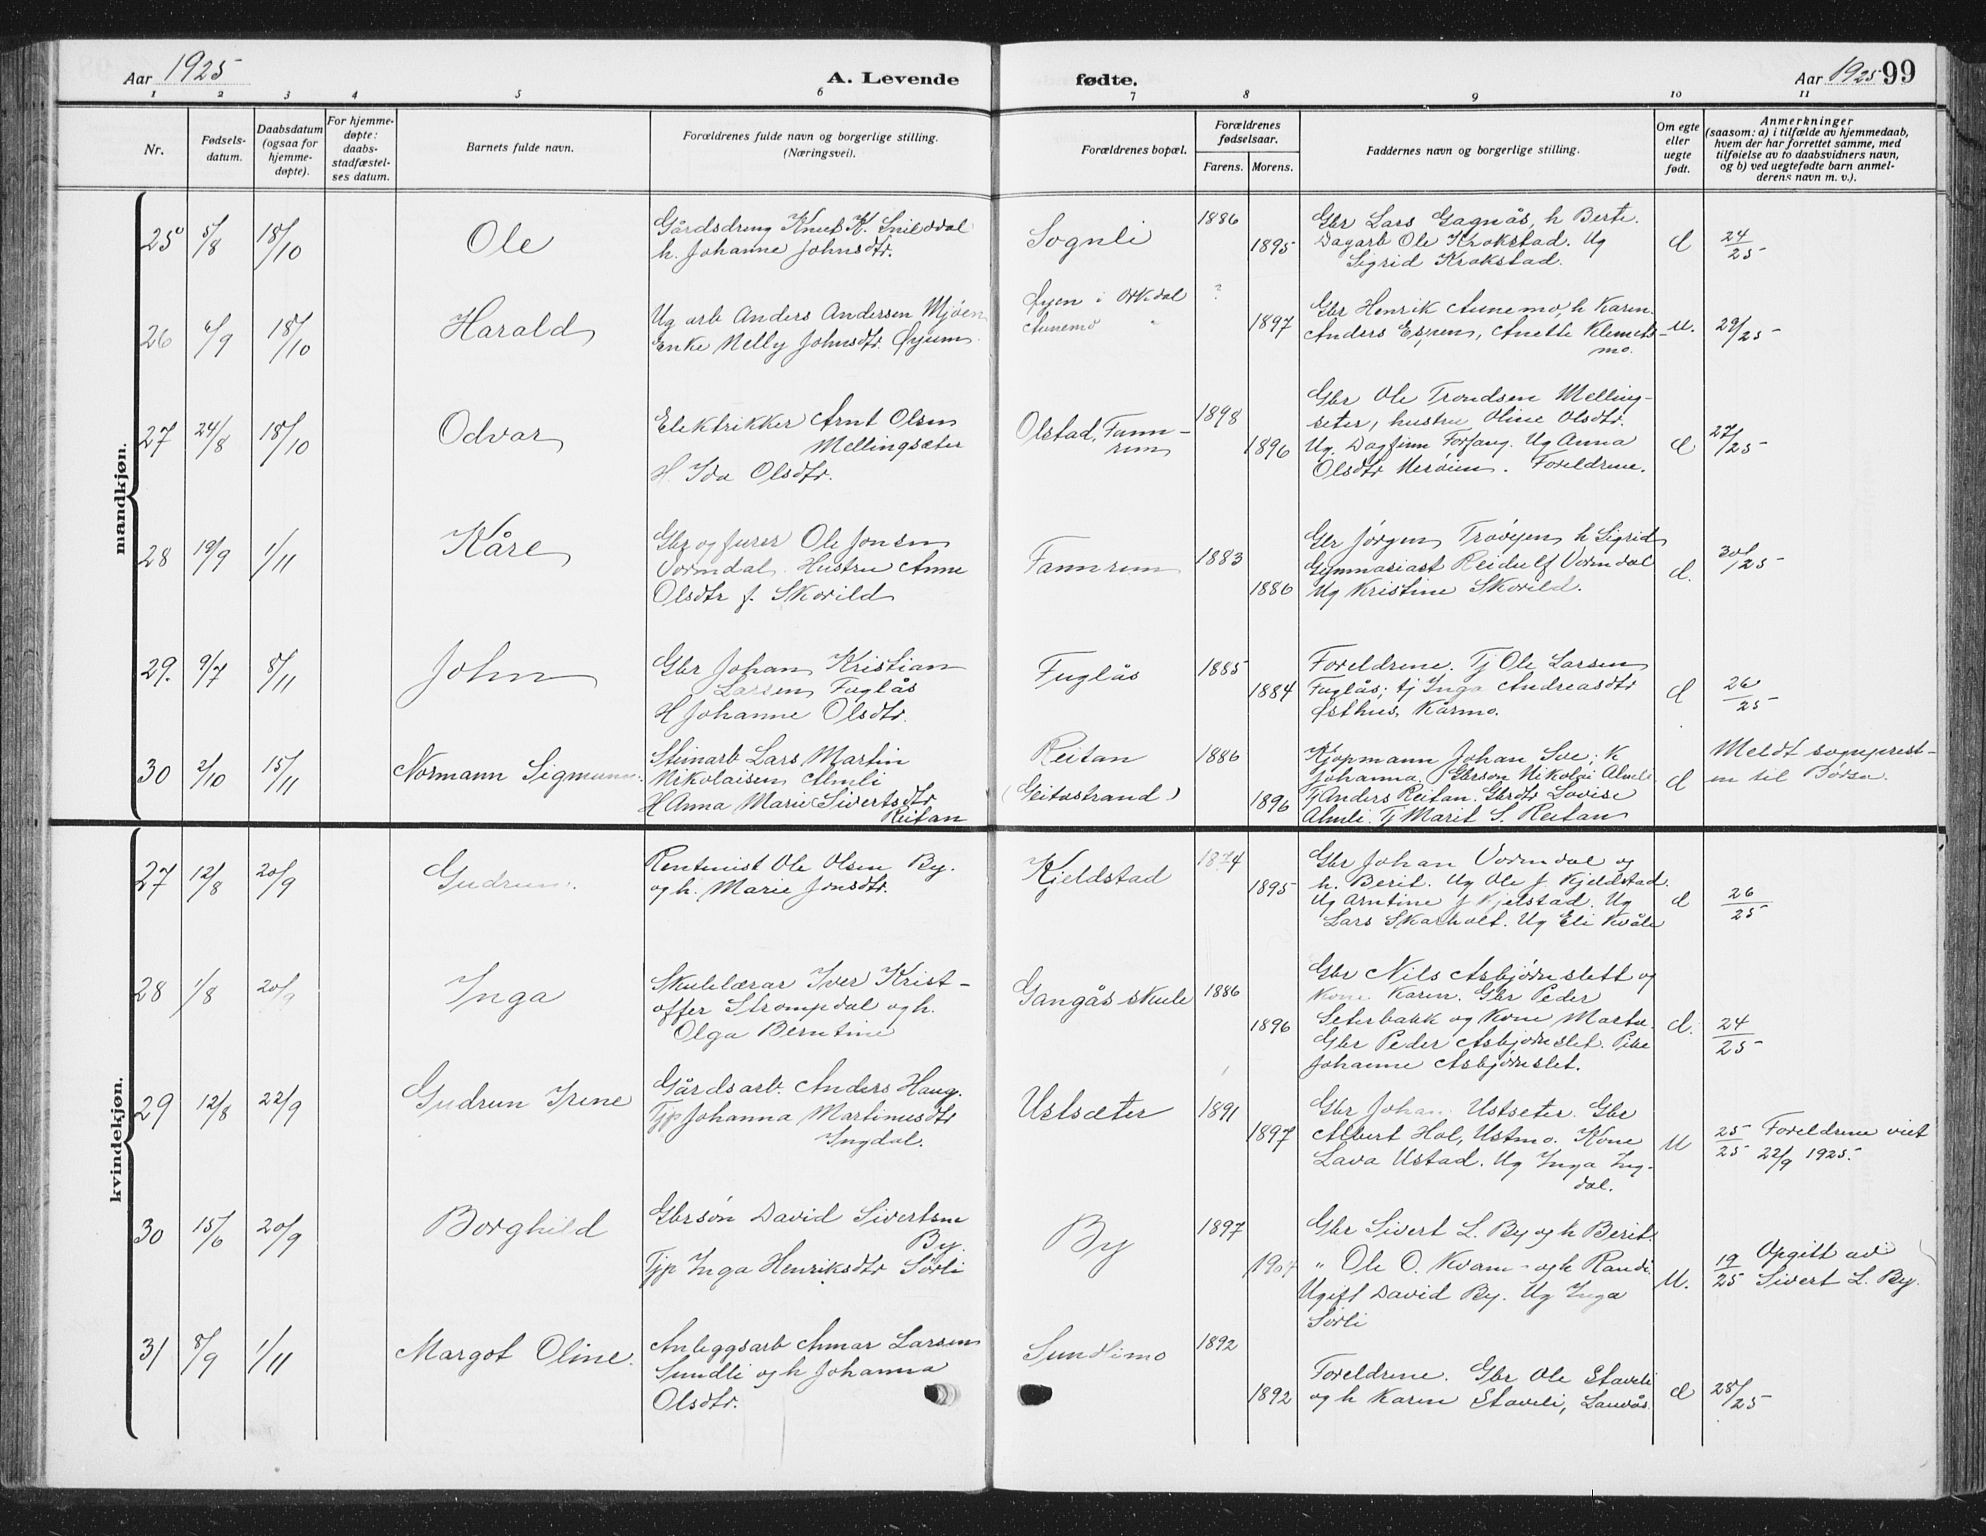 Aar 1925
A. Levende
fødte.
Aar 1925 99
1 2 3 4 5 6 7 8 9 10 11
Nr.
Fødsels-
datum.
Daabsdatum
(ogsaa for
hjemme-
døpte).
For hjemme-
døpte:
daabs-
stadfæstel-
ses datum.
Barnets fulde navn.
Forældrenes fulde navn og borgerlige stilling.
(Næringsvei).
Forældrenes bopæl.
Forældrenes
fødselsaar.
Farens. Morens.
Faddernes navn og borgerlige stilling.
Om egte
eller
uegte
født.
Anmerkninger
(saasom: a) i tilfælde av hjemmedaab,
hvem der har forrettet samme, med
tilføielse av to daabsvidners navn,
og b) ved uegtefødte barn anmel-
derens navn m. v.).
mandkjøn.
25 5/8 18/10
Ole
Gårdsdreng Knut K. Snilddal
h. Johanne Johnsdtr.
Sognli
1886
1895
Gbr Lars Gagnås, h Berte.
Dagarb Ole Krokstad. Ug
Sigrid Krokstad.
d
24/25
26 6/9 18/10
Harald
Ug arb Anders Andersen Mjøen
Enke Nelly Johnsdtr. Øyum
Øyen i Orkdal
Aunemo "
?
1897
Gbr Henrik Aunemo, h Karen.
Anders Espen, Anette Klemets-
mo.
u.
29/25
27 24/8 18/10
Odvar
Elektrikker Arnt Olsen
Mellingsæter
H. Ida Olsdtr.
Olstad, Fann-
rem
1898
1896
Gbr Ole Trondsen Melling-
seter, hustru Oline Olsdtr.
Ug. Dagfinn Forfang. Ug Anna
Olsdtr Merøien. Foreldrene.
d
27/25
28 19/9 1/11
Kåre
Gbr og furer Ole Jonsen
Vormdal. Hustru Anne
Olsdtr f. Skorild
Fannrem
1883
1886
Gbr Jørgen Trøøyen h Sigrid
Gymnasiast Reidulf Vormdal
Ug Kristine Skorild.
d.
30/25
29. 9/7 8/11
John
Gbr Johan Kristian
Larsen Fuglås
H Johanne Olsdtr.
Fuglås
1885
1884
Foreldrene. Tj Ole Larsen
Fuglås; tj Inga Andreasdtr
Østhus, Kårmo.
d
26/25
30 2/10 15/11
Normann Sigmunn.
Steinarb Lars Martin
Nikolaisen Almli
H Anna Marie Sivertsdtr
Reitan
Reitan
(Geitastrand)
1886
1896
Kjøpmann Johan Soe; K
Johanna. Gbrson Nikolai Almli
Tj Anders Reitan. Gbrdtr Lovise
Almli. Tj Marit S. Reitan
d
Meldt sogneprest-
en til Børsa.
kvindekjøn.
27 12/8 20/9
Gudrun.
Rentenist Ole Olsen By.
og h. Marie Jonsdtr.
Kjeldstad
1874
1895
Gbr Johan Vormdal og
h. Berit. Ug Ole J Kjeldstad.
Ug Arntine J Kjelstad. Ug
Lars Skarholt. Ug Eli Kvåle
d
26/25
28 1/8 20/9
Inga
Skulelærar Iver Krist-
offer Strompdal og h.
Olga Berntine
Gangås skule
1886
1896
Gbr Nils Asbjørnslett og
kone Karen. Gbr Peder
Seterbakk og kone Marta.
Gbr Peder Asbjørnslet. Pike
Johanne Asbjørnslet.
d.
24/25
29 12/8 22/9
Gudrun Irene
Gårdsarb. Anders Haug.
Tjp Johanna Martinusdtr
Ingdal.
Ustsæter
1891
1897
Gbr Johan Ustseter. Gbr
Albert Hol, Ustmo. Kone
Lava Ustad. Ug Inga Ing-
dal.
u
25/25 Foreldrene viet
22/9 1925.
30 15/6 20/9
Borghild
Gbrsøn David Sivertsen
By.
Tjp Inga Henriksdtr Sørli
By
1897
1904
Gbr Sivert L. By og h Berit
" Ole O. Kvam - og h Randi.
Ugift David By. Ug Inga
Sørli
u.
19/25 Opgitt av
Sivert L. By.
31 8/9 1/11
Margot Oline.
Anleggsarb Anmar Larsen
Sundli og h Johanna
Olsdtr.
Sundlimo
1892
1892
Foreldrene. Gbr Ole Staveli
og h Karen Staveli, Landås.
d
28/25